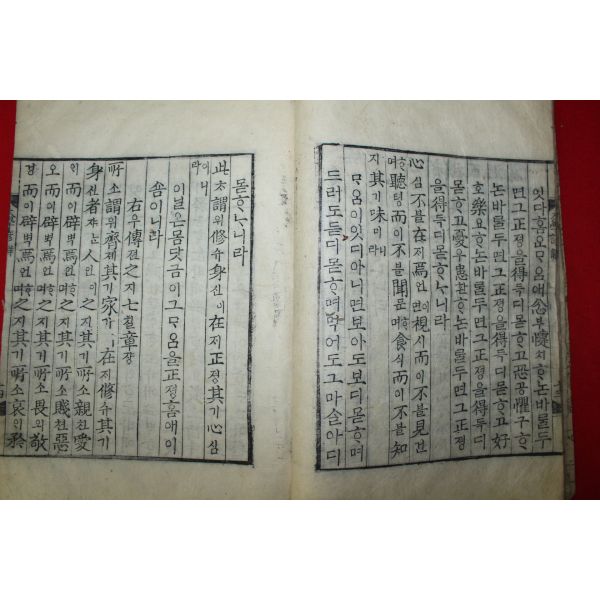 잇다홈은ᄆᆞᄋᆞᆷ애忿분懥치ᄒᆞ논바ᄅᆞᆯ두
면그正졍을得득디몯ᄒᆞ고恐공懼구ᄒᆞ
논바ᄅᆞᆯ두면그正졍을得득디몯ᄒᆞ고好
호樂요ᄒᆞ논바ᄅᆞᆯ두면그正졍을得득디
몯ᄒᆞ고憂우患환ᄒᆞ논바ᄅᆞᆯ두면그正졍
을得득디몯ᄒᆞᄂᆞ니라
心심不블在ᄌᆡ焉언이면視시而이不블見견
ᄒᆞ며聽텽而이不블聞문ᄒᆞ며食식而이不블知
지其기味미니라
ᄆᆞᄋᆞᆷ이잇디아니면보아도보디몯ᄒᆞ며
드러도듣디몯ᄒᆞ며먹어도그마ᄉᆞᆯ아디
몯ᄒᆞᄂᆞ니라
此ᄎᆞ謂위修슈身신이在ᄌᆡ正졍其기心심
이니라
이닐온몸닷금이그ᄆᆞᄋᆞᆷ을正졍홈애이
숌이니라
右우傳뎐之지七칠章쟝
所소謂위齊졔其기家가ㅣ在ᄌᆡ修슈其기
身신者쟈ᄂᆞᆫ人인이之지其기所소親친愛
ᄋᆡ而이辟벽焉언ᄒᆞ며之지其기所소賤쳔惡
오而이辟벽焉언ᄒᆞ며之지其기所소畏외敬
경而이辟벽焉언ᄒᆞ며之지其기所소哀ᄋᆡ矜